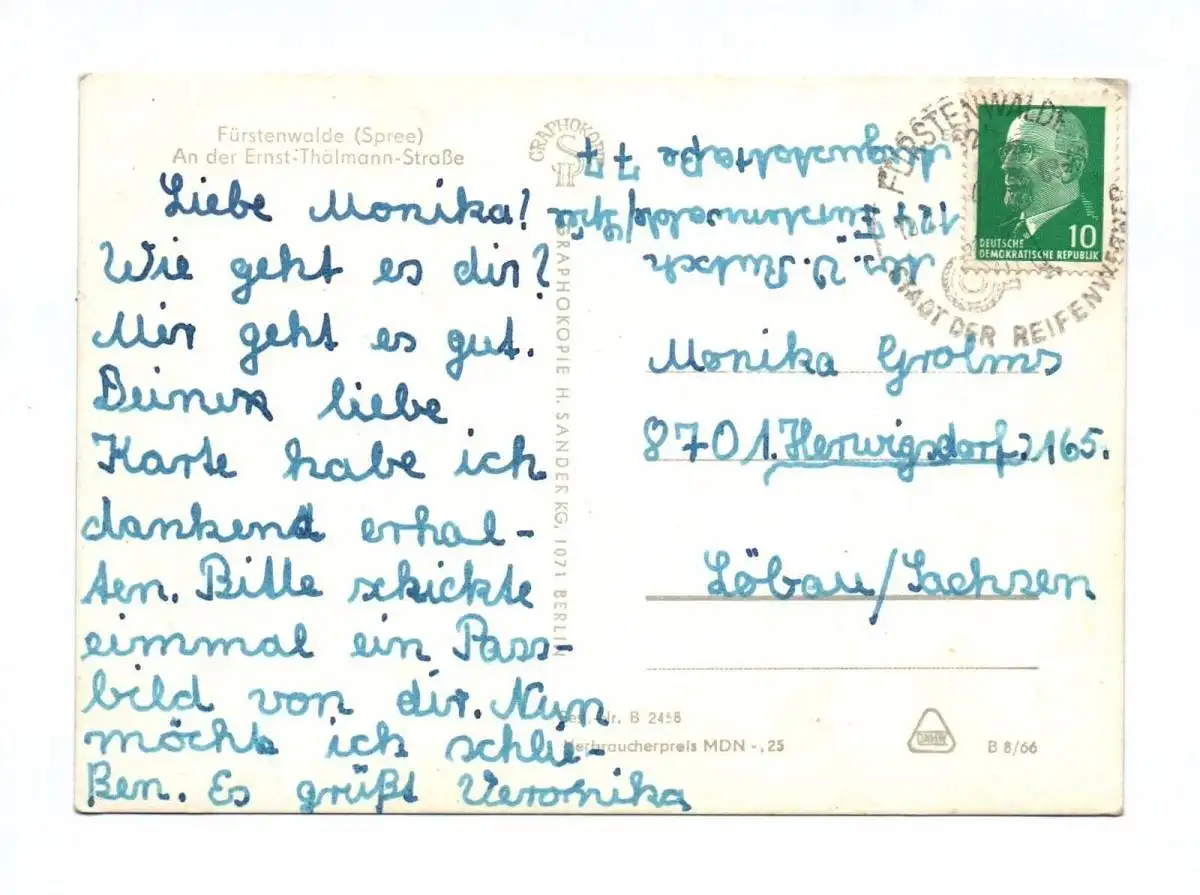 Fürstenwalde (Spree)
An der Ernst-Thälmann-Straße
Liebe Monika!
Wie geht es dir?
Mir geht es gut.
Deinen liebe
Karte habe ich
dankend erhal-
ten. Bitte schickte
eimmal ein Pass-
bild von dir. Nun
möchte ich schlie-
ßen. Es grüßt Veronika
GRAPHOKOPIE
GRAPHOKOPIE H. SANDER KG, 1071 BERLIN
Abs.: V. Rutsch
124 Fürstenwalde/Spree
Auguststraße 77
FÜRSTENWALDE
STADT DER REIFENWERKER
10
DEUTSCHE
DEMOKRATISCHE REPUBLIK
Monika Grolms
8701 Herwigsdorf 165.
Löbau/Sachsen
Best.-Nr. B 2458
Verbraucherpreis MDN -,25
B 8/66